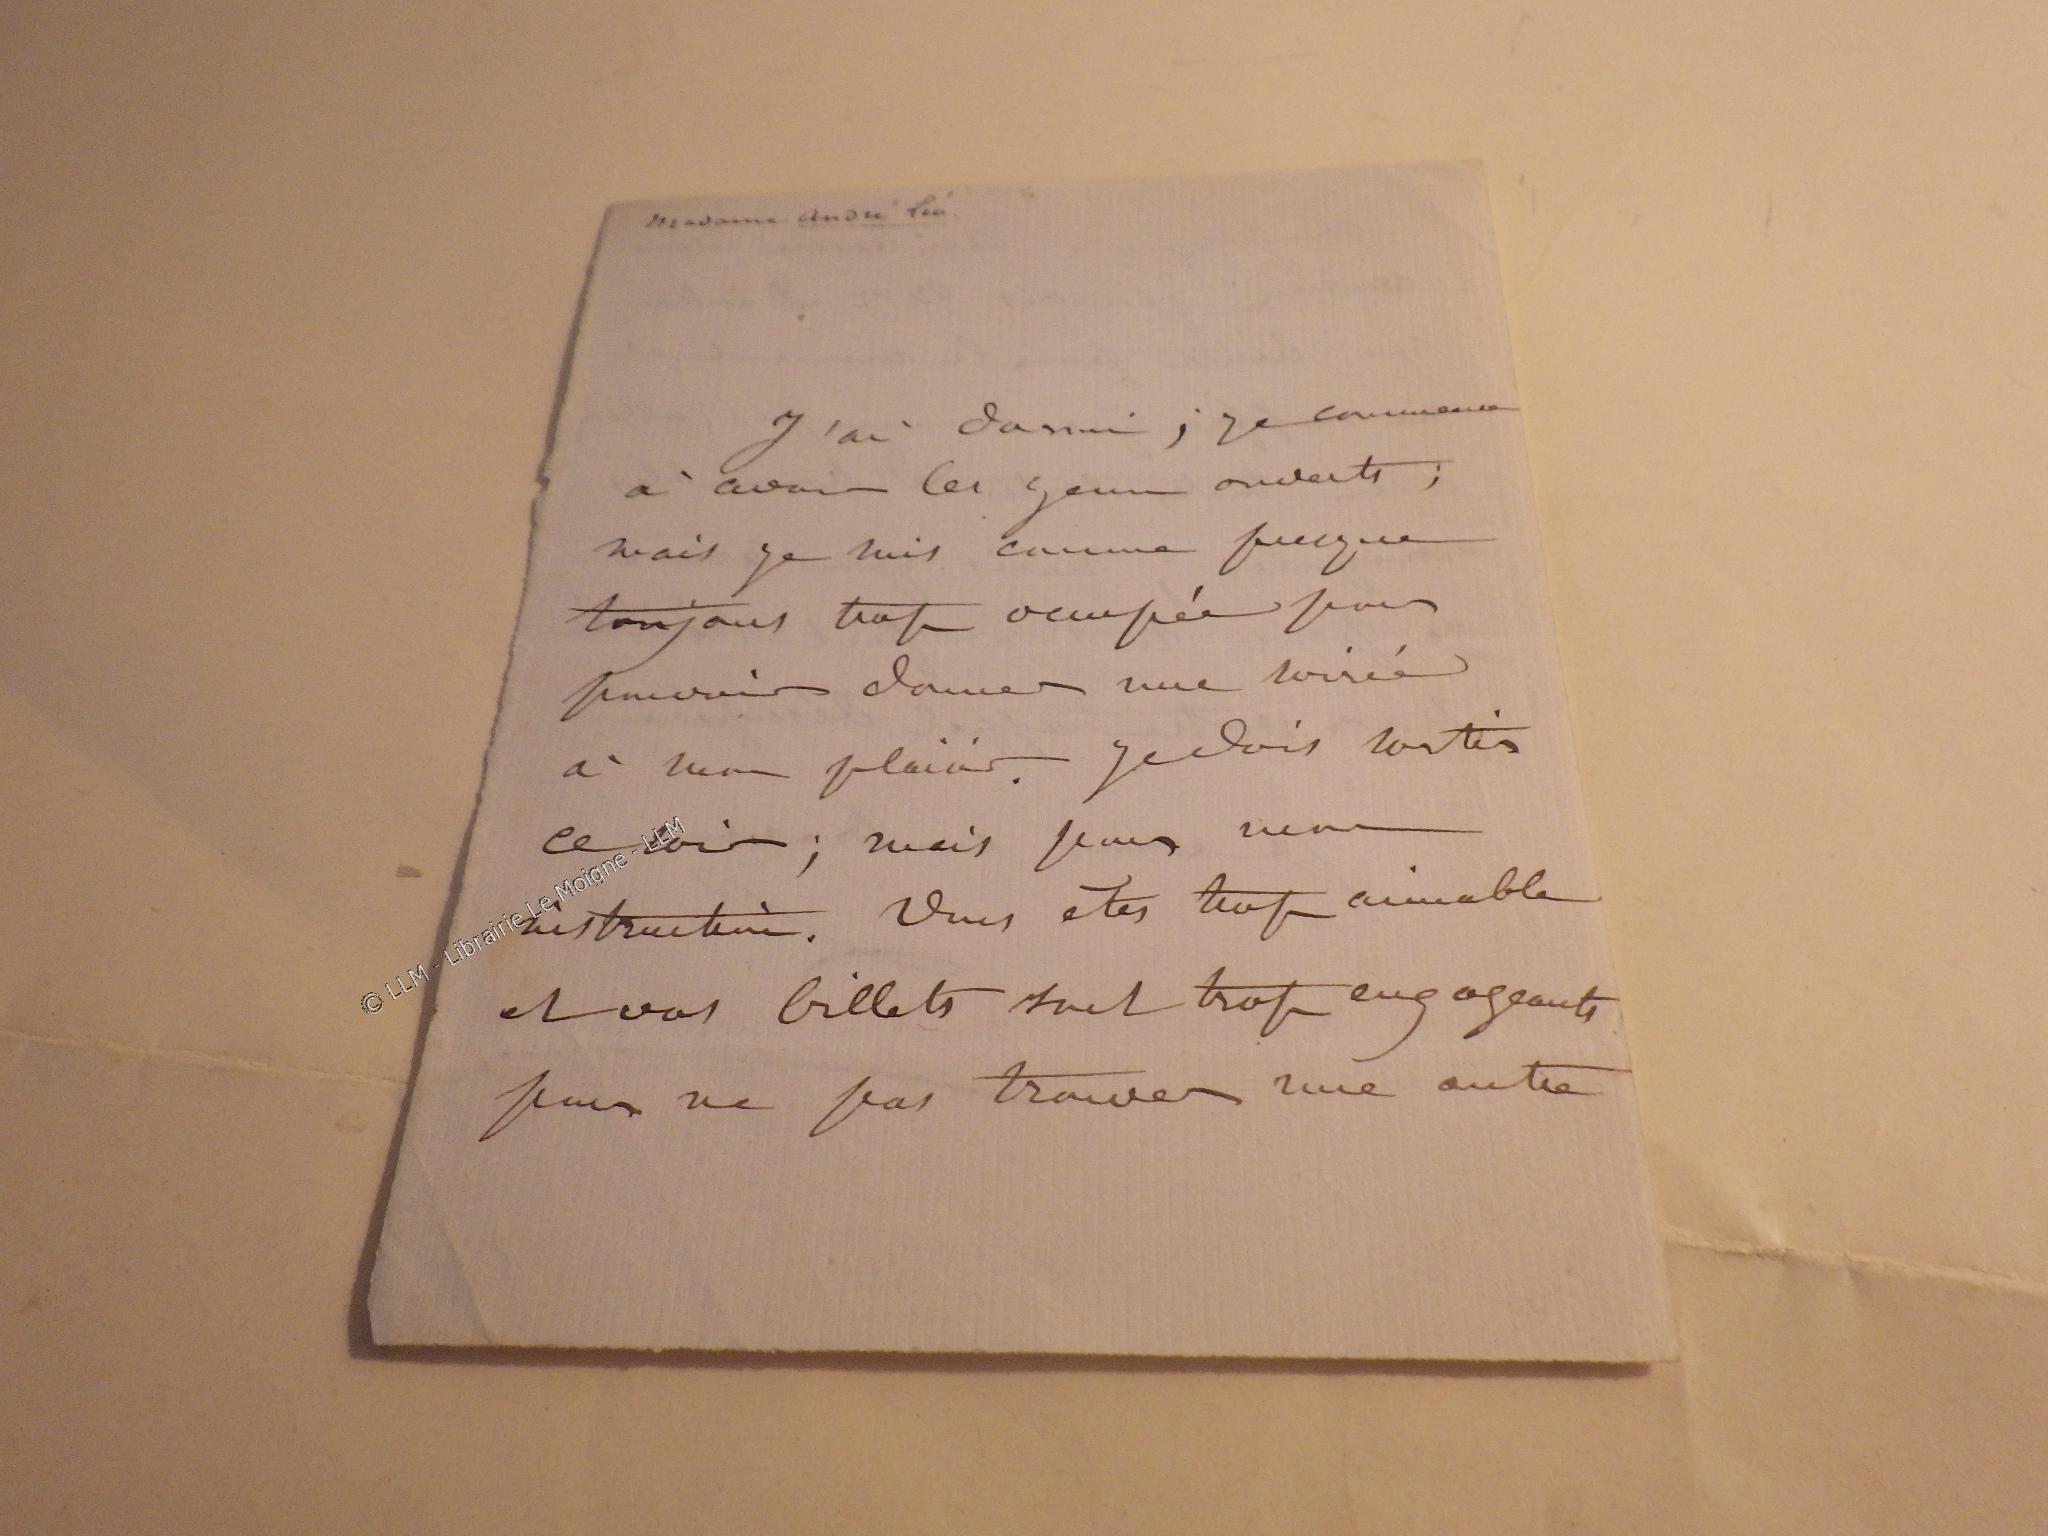 Madame André Léo.
J'ai dormi ; je commence
à avoir les yeux ouverts ;
mais je suis comme presque
toujours trop occupée pour
pouvoir donner une soirée
à mon plaisir. Je dois sortir
ce soir ; mais pour mon
instruction. Vous êtes trop aimable
et vos billets sont trop engageants
pour ne pas trouver une autre
© LLM - Librairie Le Moigne - LLM